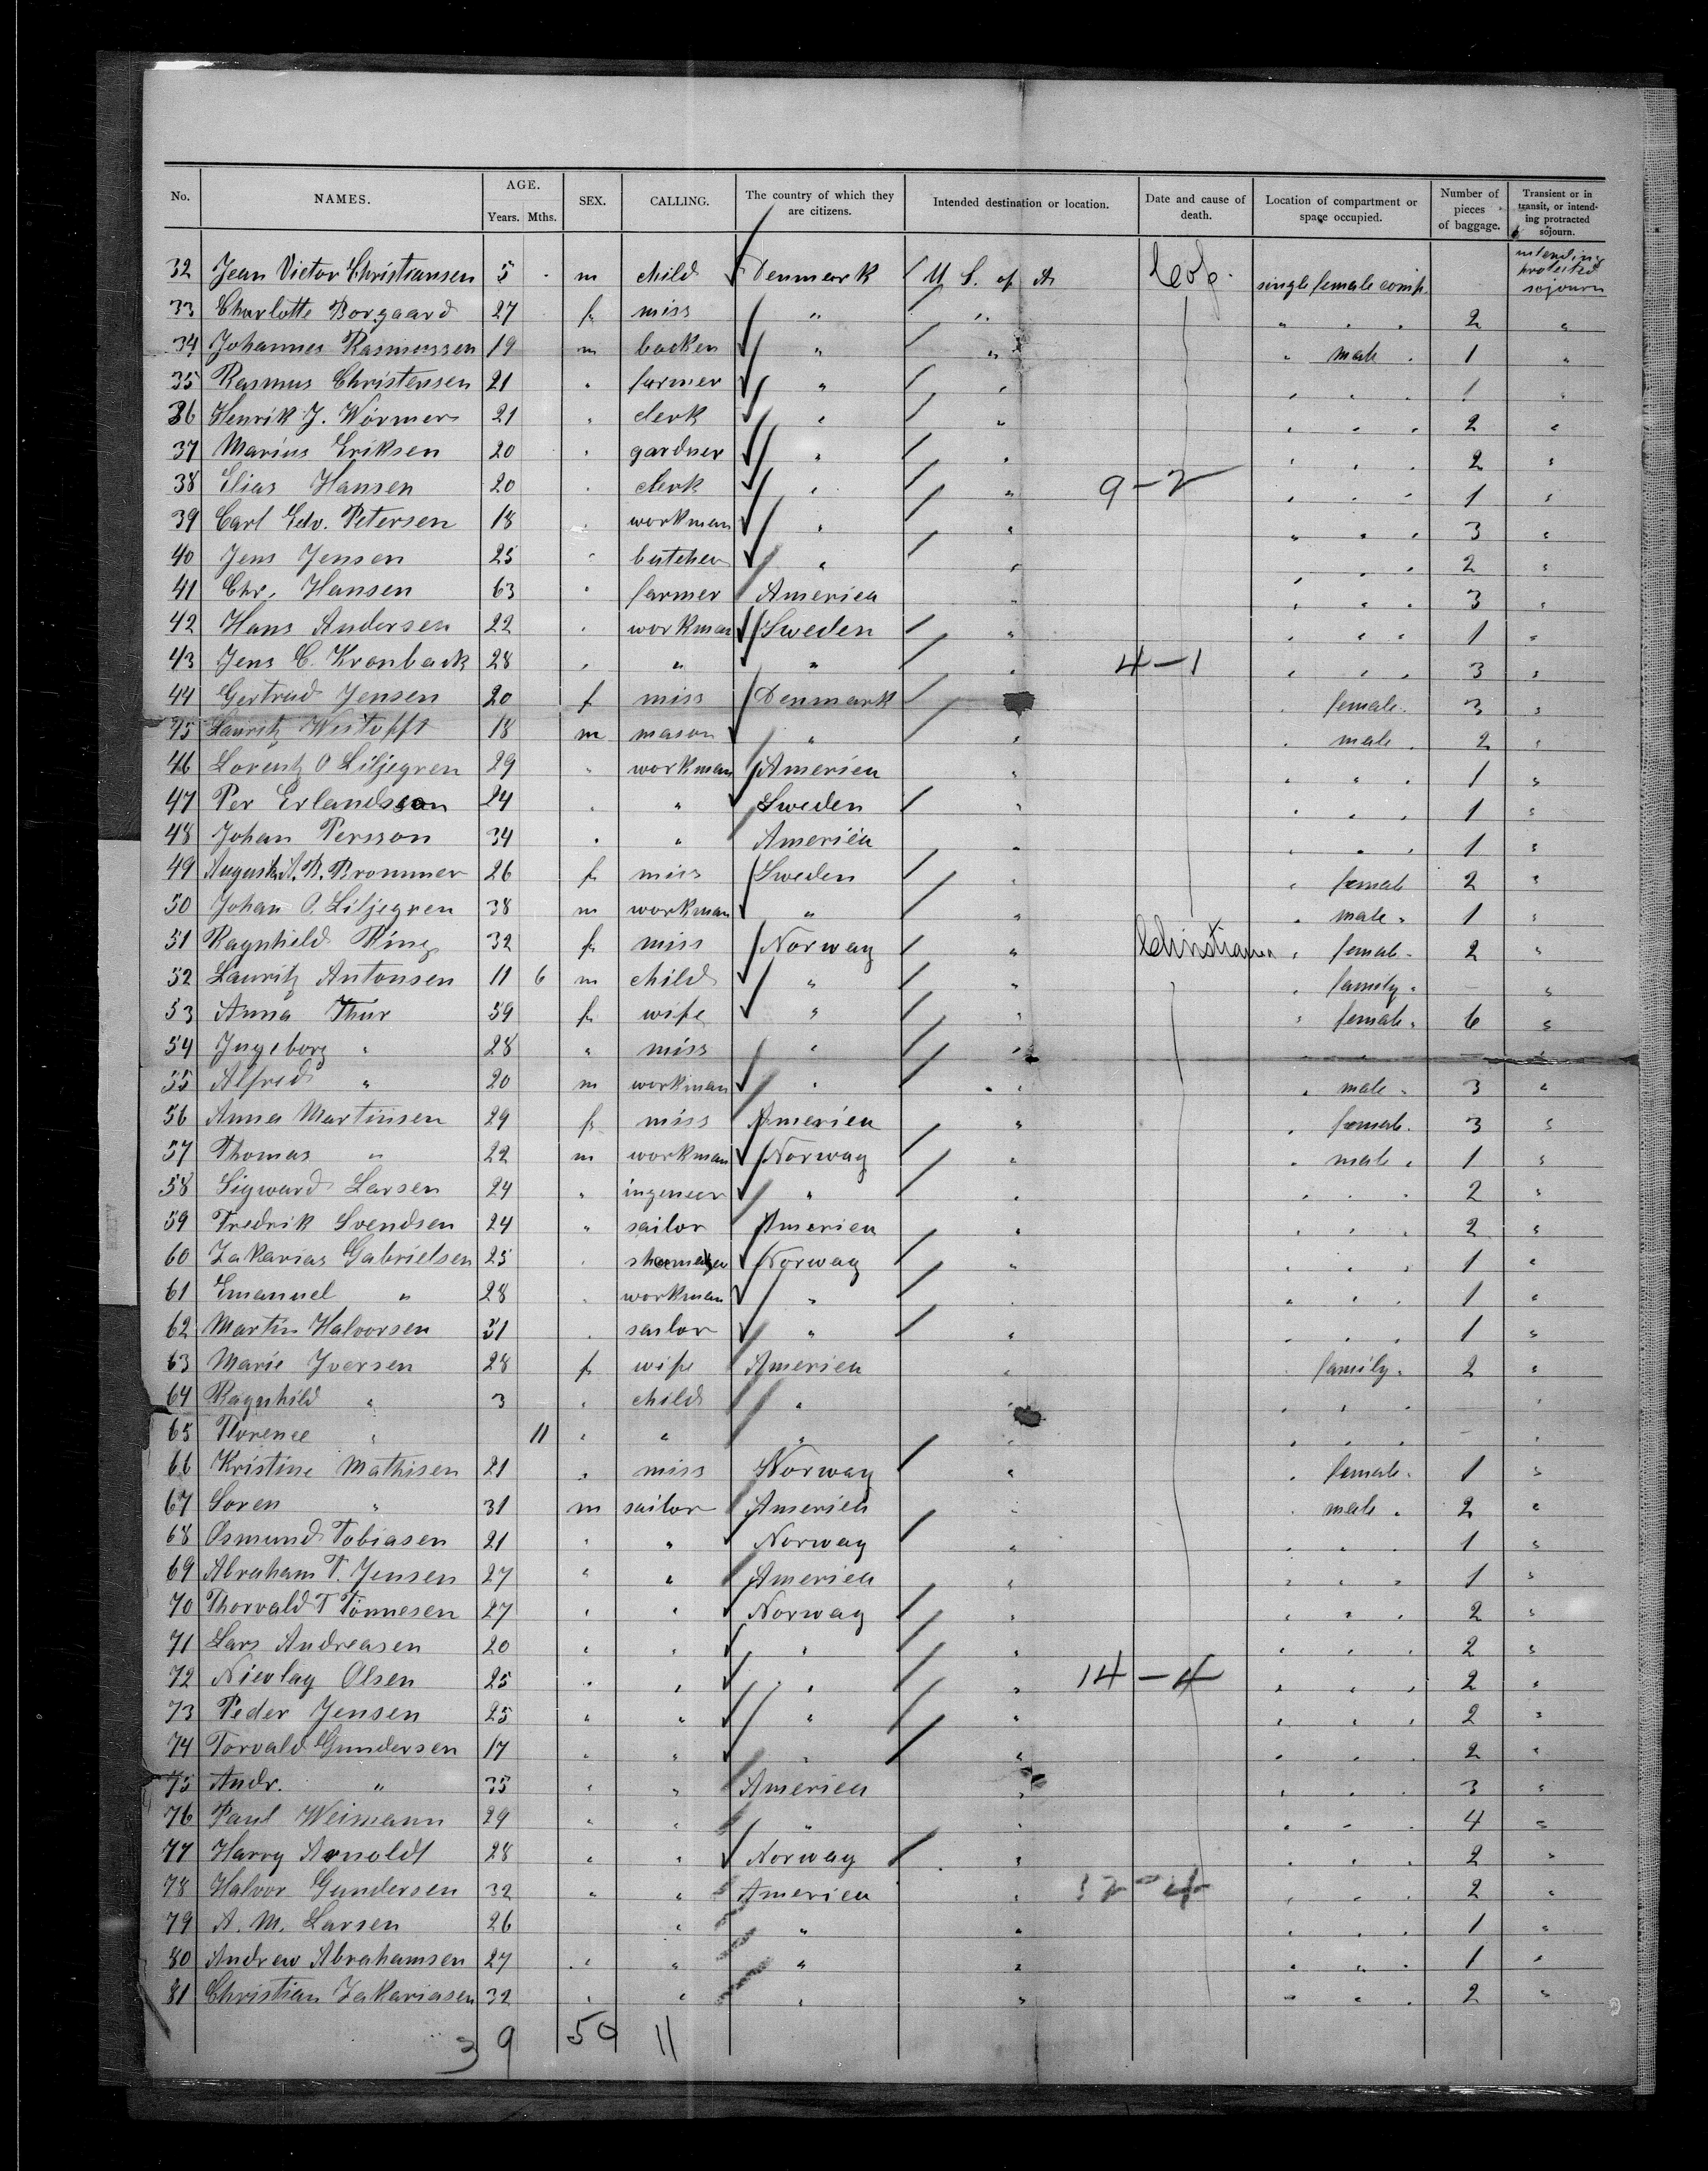 No. NAMES. AGE. Years. Mths. SEX. CALLING. The country of which they are citizens. Intended destination or location. Date and cause of death. Location of compartment or space occupied. Number of pieces of baggage. Transient or in transit, or intending protracted sojourn.
32 Jean Victor Christiansen 5 - m child Denmark U. S. of A Cop. single female comp. intending protrcted sojourn
33 Charlotte Borgaard 27 f. miss " " " " " 2 "
34 Johannes Rasmussen 19 m backer " " " male " 1 "
35 Rasmus Christensen 21 " farmer " " " " " 1 "
36 Henrik J. Wörmer 21 " clerk " " " " " 2 "
37 Marius Eriksen 20 " gardner " " " " " 2 "
38 Elias Hansen 20 " clerk " " 9-2 " " " 1 "
39 Carl Edv. Petersen 18 " workman " " " " " 3 "
40 Jens Jensen 25 " butcher " " " " " 2 "
41 Chr. Hansen 63 " farmer America " " " " 3 "
42 Hans Andersen 22 " workman Sweden " " " " 1 "
43 Jens C. Kronback 28 " " " " 4-1 " " " 3 "
44 Gertrud Jensen 20 f miss Denmark " female " 3 "
45 Lauritz Westofft 18 m mason " " " male " 2 "
46 Lorentz O Liljegren 29 " workman America " " " " 1 "
47 Per Erlandsson 24 " " Sweden " " " " 1 "
48 Johan Persson 34 " " America " " " " 1 "
49 August A. B. Brommer 26 f. miss Sweden " " female 2 "
50 Johan O. Liljegren 38 m workman " " " male " 1 "
51 Ragnhild Ring 32 f. miss Norway " Christiania " female " 2 "
52 Lauritz Antonsen 11 6 m child " " " family " - "
53 Anna Thur 59 f. wife " " " female " 6 "
54 Ingeborg " 28 " miss " " " " " - "
55 Alfred " 20 m workman " " " male " 3 "
56 Anna Martinsen 29 f. miss America " " female " 3 "
57 Thomas " 22 m workman Norway " " male " 1 "
58 Sigward Larsen 24 " ingeneer " " " " " 2 "
59 Fredrik Svendsen 24 " sailor America " " " " 2 "
60 Zakarias Gabrielsen 25 " shoemaker Norway " " " " 1 "
61 Emanuel " 28 " workman " " " " " 1 "
62 Martin Halvorsen 31 " sailor " " " " " 1 "
63 Marie Iversen 28 f wife America " " family " 2 "
64 Ragnhild " 3 " child " " " " "
65 Florence " 11 " " " " " " " - "
66 Kristine Mathisen 21 " miss Norway " " female " 1 "
67 Soren " 31 m sailor America " " male " 2 "
68 Osmund Tobiasen 21 " " Norway " " " " 1 "
69 Abraham T. Jensen 27 " " America " " " " 1 "
70 Thorvald T Tönnesen 27 " " Norway " " " " 2 "
71 Lars Andreasen 20 " " " " " " " 2 "
72 Nicolay Olsen 25 " " " " 14-4 " " " 2 "
73 Peder Jensen 25 " " " " " " " 2 "
74 Torvald Gundersen 17 " " " " " " " 2 "
75 Andr. " 35 " " America " " " " 3 "
76 Paul Weimann 29 " " " " " " " 4 "
77 Harry Arnoldt 28 " " Norway " " " " 2 "
78 Halvor Gundersen 32 " " America " 12-4 " " " 2 "
79 A. M. Larsen 26 " " " " " " 1 "
80 Andrew Abrahamsen 27 " " " " " " " 1 "
81 Christian Zakariasen 32 " " " " " " " 2 "
39 50 11